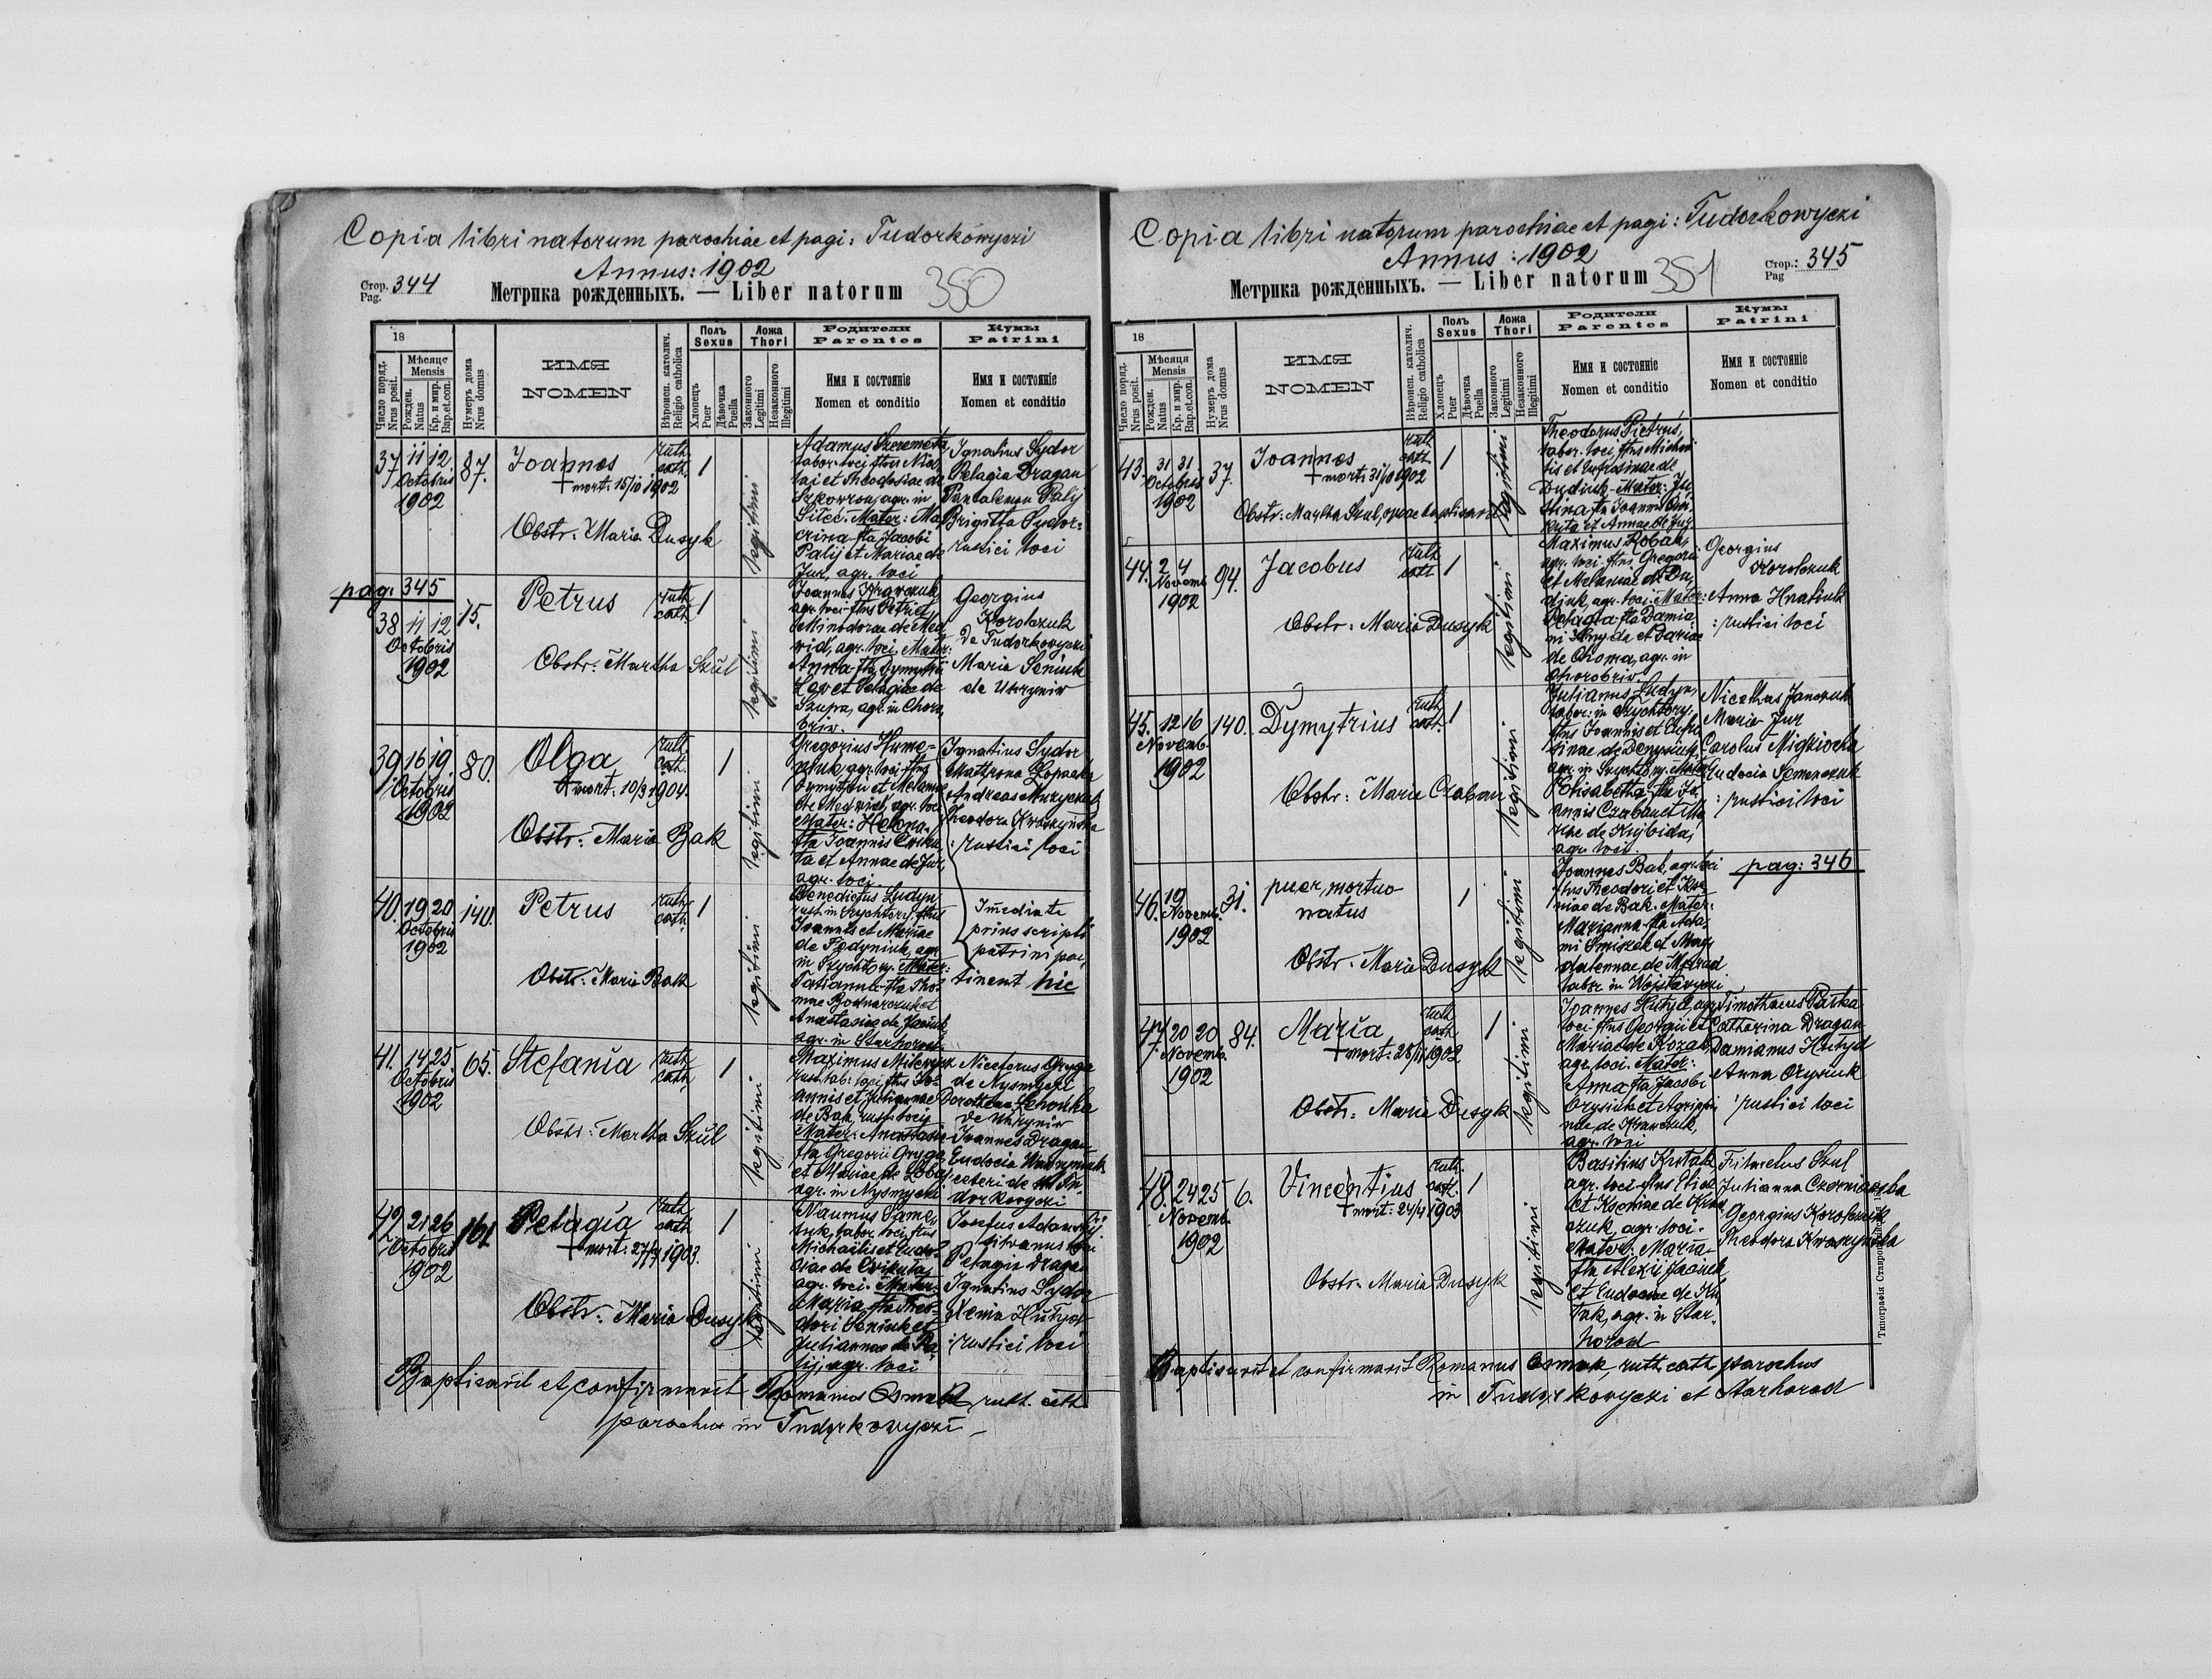 Copia libri natorum parochiae et pagi: Tudorkowyczi
Annus: 1902
Стор. Pag. 344
Метрика рожденныхъ. — Liber natorum 350
18
Число поряд. Nrus posit.
Мѣсяце Mensis
Рожден. Natus
Кр. и мир. Bap. et con.
Нумеръ дома Nrus domus
ИМЯ
NOMEN
Вѣроисп. католич. Religio catholica
Полъ Sexus
Хлопецъ Puer
Дѣвочка Puella
Ложа Thori
Законного Legitimi
Незаконного Illegitimi
Родители
Parentes
Имя и состояніе
Nomen et conditio
Кумы
Patrini
Имя и состояніе
Nomen et conditio
37 11 12 Octobris 1902 87.
Joannes
+ mort: 15/10 1902
ruth. cath. 1
Obstr: Maria Dusyk
legitimi
Adamus Szeremeta,
labor. loci ftus Nico
lai et Theodosiae de
Szkorroa, agr. in
Silec. Mater: Ma
crina fta Jacobi
Palij et Mariae de
Jur, agr. loci
Ignatius Sydor
Pelagia Dragan
Pantaleon Palij
Brigitta Sydor:
rustici loci
pag. 345
38 11 12 Octobris 1902 15.
Petrus
ruth. cath. 1
Obstr: Martha Szul
legitimi
Joannes Krawczuk,
agr. loci ftus Petri et
Minodorae de Med
wid, agr. loci. Mater:
Anna fta Dymytrii
et Pelagiae de
Szupa, agr. in Choro
briw.
Georgius
Korolczuk
de Tudorkowyczi
Maria Seniuk
de Uhryniw
39 16 19 Octobris 1902 80.
Olga
+ mort: 10/3 1904.
ruth. cath. 1
Obstr: Maria Bak
legitimi
Gregorius Hume-
niuk, agr. loci ftus
Dymytrii et Melaniae
de Medwid, agr. loci
Mater: Helena
fta Joannis Cviku
ta et Annae de Jur,
agr. loci.
Ignatius Sydor
Mathrona Łopacka
Andreas Muzyczuk
Theodora Kraszyńska
: rustici loci
40. 19 20 Octobris 1902 140.
Petrus
ruth. cath. 1
Obstr: Maria Bak
legitimi
Benedictus Ludyn
rust. in Szychtory, ftus
Joannis et Mariae
de Fedyniuk, agr.
in Szychtory. Mater:
Tatianna fta Tho
mae Bodnarczuk et
Anastasiae de Jaciuk,
agr. in Starhorod.
Imediate
prius scripti
patrini per
tinent hic
41. 14 25 Octobris 1902 65.
Stefania
ruth. cath. 1
Obstr: Martha Szul
legitimi
Maximus Mikerycz
rust. lab: loci, ftus Jo
annis et Julianae
de Bak, rust. loci
Mater: Anastasia
fta Gregorii Gryga
et Mariae de Łobaj
agr. in Nysmyczi
Niceforus Gryga
de Nysmyczi
Dorothea Lehońka
de Uhryniw
Joannes Dragan
Eudocia
ceteri de Tu
dorkowyczi
42 21 26 Octobris 1902 161
Pelagia
+ mort: 27/7 1903.
ruth. cath. 1
Obstr: Maria Dusyk
legitimi
Naumus Same
tiuk, labor. loci, ftus
Michaëlis et Eudo
ciae de Cvikuta,
agr. loci. Mater:
Maria fta Theo
dori Seniuk et
Juliannae de Pa
lij, agr. loci
Josefus Adamskij
silvanus loci
Pelagia Dragan
Ignatius Sydor
Xenia Hutyd
: rustici loci
Baptisavit et confirmavit Romanus Osmak, ruth. cath.
parochus in Tudorkowyczi
Copia libri natorum parochiae et pagi: Tudorkowyczi
Annus: 1902
Стор.: Pag 345
Метрика рожденныхъ. — Liber natorum 351
18
Число поряд. Nrus posit.
Мѣсяця Mensis
Рожден. Natus
Кр. и мир. Bap. et con.
Нумеръ дома Nrus domus
ИМЯ
NOMEN
Вѣроисп. католич. Religio catholica
Полъ Sexus
Хлопецъ Puer
Дѣвочка Puella
Ложа Thori
Законного Legitimi
Незаконного Illegitimi
Родители
Parentes
Имя и состояніе
Nomen et conditio
Кумы
Patrini
Имя и состояніе
Nomen et conditio
43. 31 31 Octobris 1902 37.
Joannes
+ mort: 31/10 1902
ruth. cath. 1
Obstr: Martha Szul, aquae baptisavit
legitimi
Theodorus Pietrus,
labor. loci, ftus Michaë
lis et Eufrosinae de
Dudiuk. Mater: Ju
stina fta Joannis Cvi
kuta et Annae de Jur
44. 2 4 Novemb. 1902 94.
Jacobus
ruth. cath. 1
Obstr: Maria Dusyk
legitimi
Maximus Robak,
agr. loci ftus Gregorii
et Melaniae de Du
diuk, agr. loci. Mater:
Pelagia fta Damia
ni Hnyda et Dariae
de Choma, agr. in
Chorobriw.
Georgius
Korolczuk
Anna Hnatiuk
: rustici loci
45. 12 16 Novemb. 1902 140.
Dymytrius
ruth. cath. 1
Obstr: Maria Czaban
legitimi
Julianus Ludyn,
labor: in Szychtory,
ftus Joannis et Eufro
sinae de Denysiuk,
agr. in Szychtory. Mater:
Elisabetha fta Jo
annis Czaban et
de Kujbida,
agr. loci.
Nicethas Janczuk
Maria Jur
Carolus Migrioczka
Eudocia Semenczuk
: rustici loci
46. 19 Novemb. 1902 31.
puer, mortuo
natus
1
Obstr: Maria Dusyk
legitimi
Joannes Bak, agr. loci
ftus Theodori et Kse
niae de Bak. Mater:
Marianna fta Ada
mi Smiszek et Mag
dalennae de Mokrad
labor. in Wojslawyczi
pag: 346
47. 20 20 Novemb. 1902 84.
Maria
+ mort: 28/11 1902
ruth. cath. 1
Obstr: Maria Dusyk
legitimi
Joannes Hutyd, agr.
loci ftus Georgii et
Mariae de Kozak,
agr. loci. Mater:
Anna fta Jacobi
Orysiuk et Agrippi
nae de Krawczuk,
agr. loci
Timothaeus Paska
Catharina Dragan
Damianus Hutyd
Anna Orysiuk
: rustici loci
48. 24 25 Novemb. 1902 6.
Vincentius
+ mort: 24/4 1903
ruth. cath. 1
Obstr: Maria Dusyk
legitimi
Basilius Krotak,
agr. loci ftus Eliae
et Kseniae de Kraw
czuk, agr. loci.
Mater: Maria
fta Alexii Jaciuk
et Eudociae de Ku
tak, agr. in Star
horod
Filaretus Szul
Julianna Czerniawska
Georgius Korolczuk
Theodora Kraszyńska
Baptisavit et confirmavit Romanus Osmak, ruth. cath. parochus
in Tudorkowyczi et Starhorod